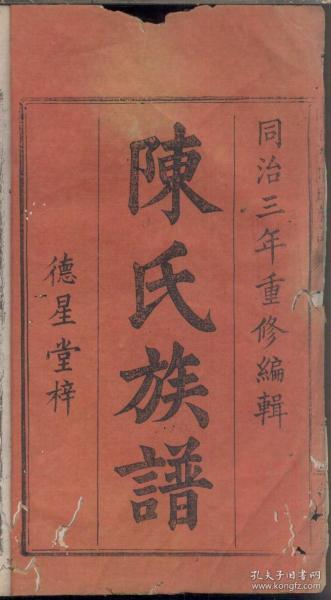 同治三年重修編輯
陳氏族譜
德星堂梓
孔夫子旧书网